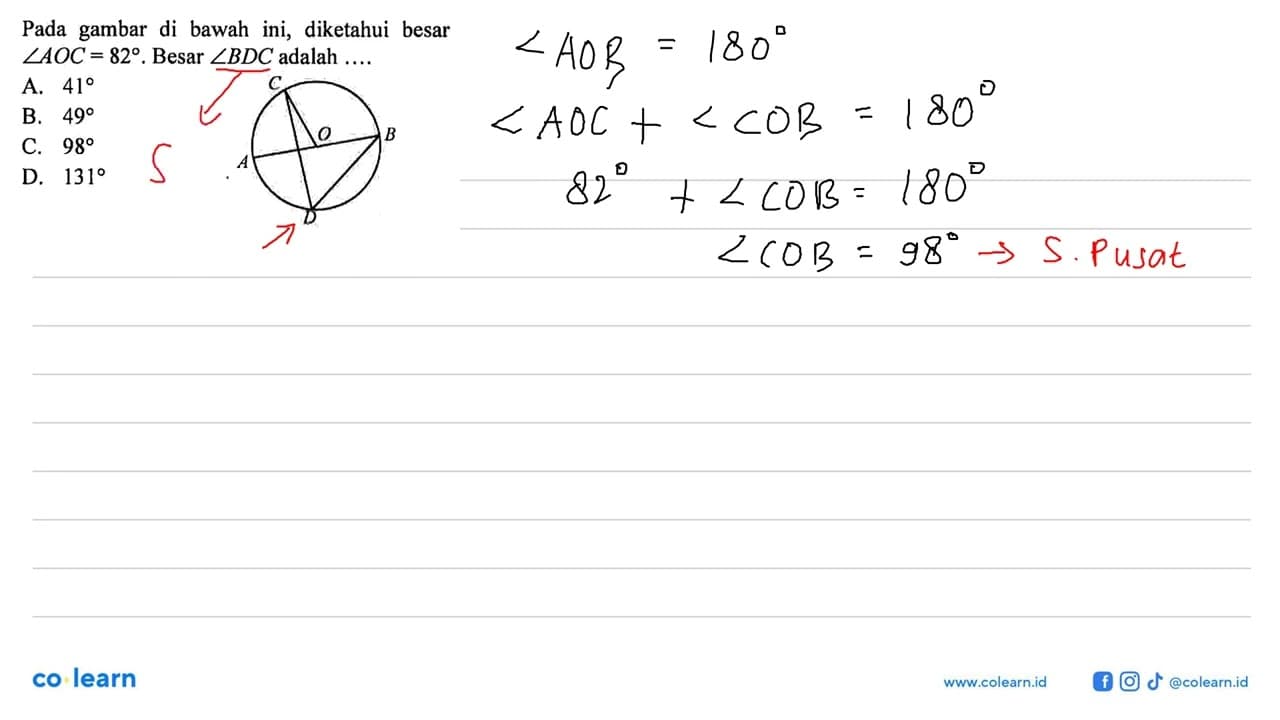 Pada gambar di bawah ini, diketahui besar
∠AOC = 82°. Besar ∠BDC adalah ....
A. 41°
B. 49°
C. 98°
D. 131°
C
O
B
A
D
S
∠AOB = 180°
∠AOC + ∠COB = 180°
82° + ∠COB = 180°
∠COB = 98° → S. Pusat
co learn
www.colearn.id
@colearn.id